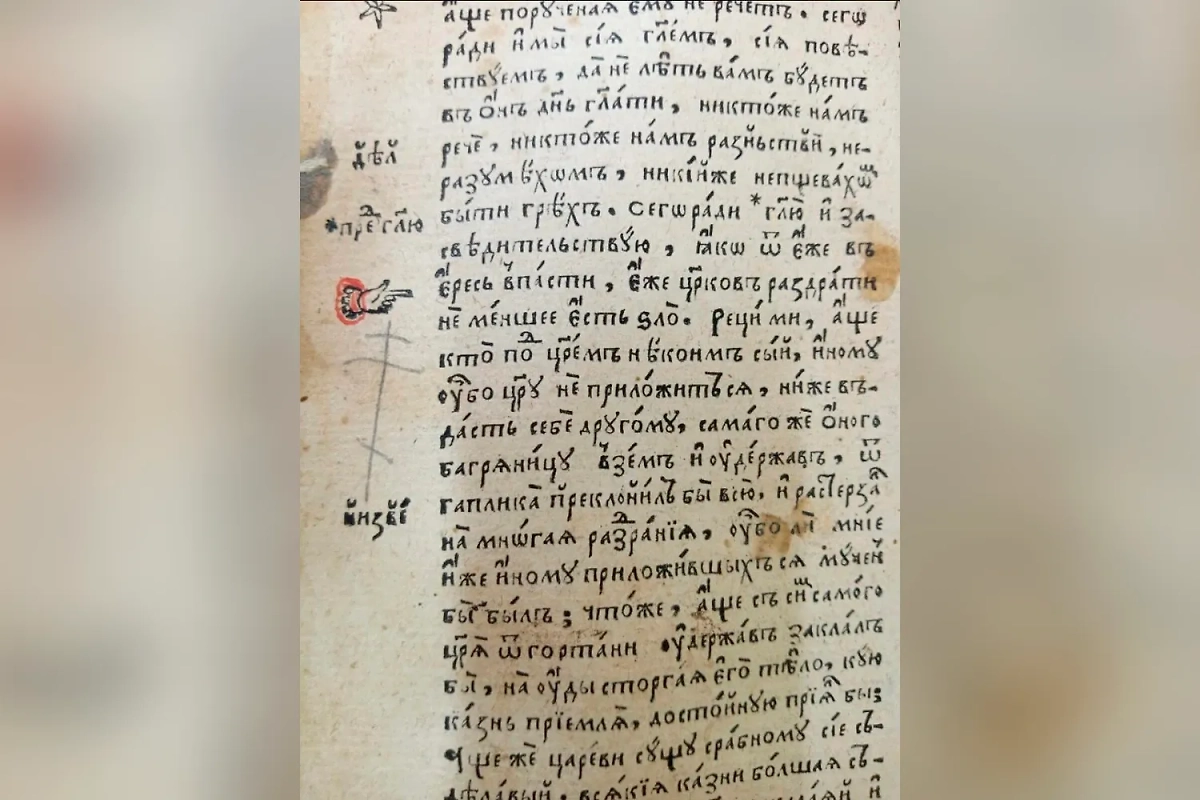 а҆́ще порꙋче́наѧ є҆мꙋ̀ не рече́тъ. сегѡ̀
ра́ди и҆ мы̀ сїѧ̑ гл҃емъ, сїѧ̑ повѣ-
ствꙋ́емъ, да̀ не лѣ́ть ва́мъ бꙋ́детъ
въ ѻ҆́нъ дн҃ь гл҃а́ти, никто́же на́мъ
речѐ, никто́же на́мъ разньстві́й, не-
разꙋмѣ́хѡмъ, нику́йже непщева́хꙋ
дѣл
бы́ти грѣ́хъ. Сегѡ̀ ра́ди *гл҃ю и҆ за-
*пред̾гл҃ю
свѣдительствꙋ́ю, ꙗ҆́кѡ ѿ є҆́же въ
є҆́ресь впа́сти, є҆́же цр҃ковъ раздра́ти
не ме́ншее є҆́сть ѕло̀. Рецы́ ми, а҆́ще
кто̀ под̾ цр҃е́мъ нѣ́коимъ сы́й, и҆́номꙋ
ᲂу҆́бо цр҃ꙋ̀ не приложи́тьсѧ, ни́же въ-
да́сть себѐ дрꙋго́мꙋ, сама́го же ѻ҆́ного
багрѧни́цꙋ взе́мъ и҆ ᲂу҆де́ржавъ, ѿ
гаплика̀ преклони́лъ бы̀ всю̀, и҆ растерза́л
на мнѡ́гаѧ раздра́нїѧ, ᲂу҆́бо ли мні́е
и҆́же и҆́номꙋ приложи́вшыхъсѧ мꙋ́чен
бы̀ бы́лъ; что́же, а҆́ще съ си́м само́го
цр҃ѧ̀ ѿ горта́ни ᲂу҆держа́въ закла́лъ
бы̀, на ᲂу҆́ды сторга́ѧ є҆го̀ тѣ́ло, кꙋ́ю
ка́знь прїе́млѧ, досто́йнꙋю прїѧ́л бы;
А҆́ще же царе́ви сꙋ́щꙋ сра́бномꙋ сїѐ съ-
дѣ́лавый, всѧ́кїѧ ка́зни бо́лшаѧ съ-